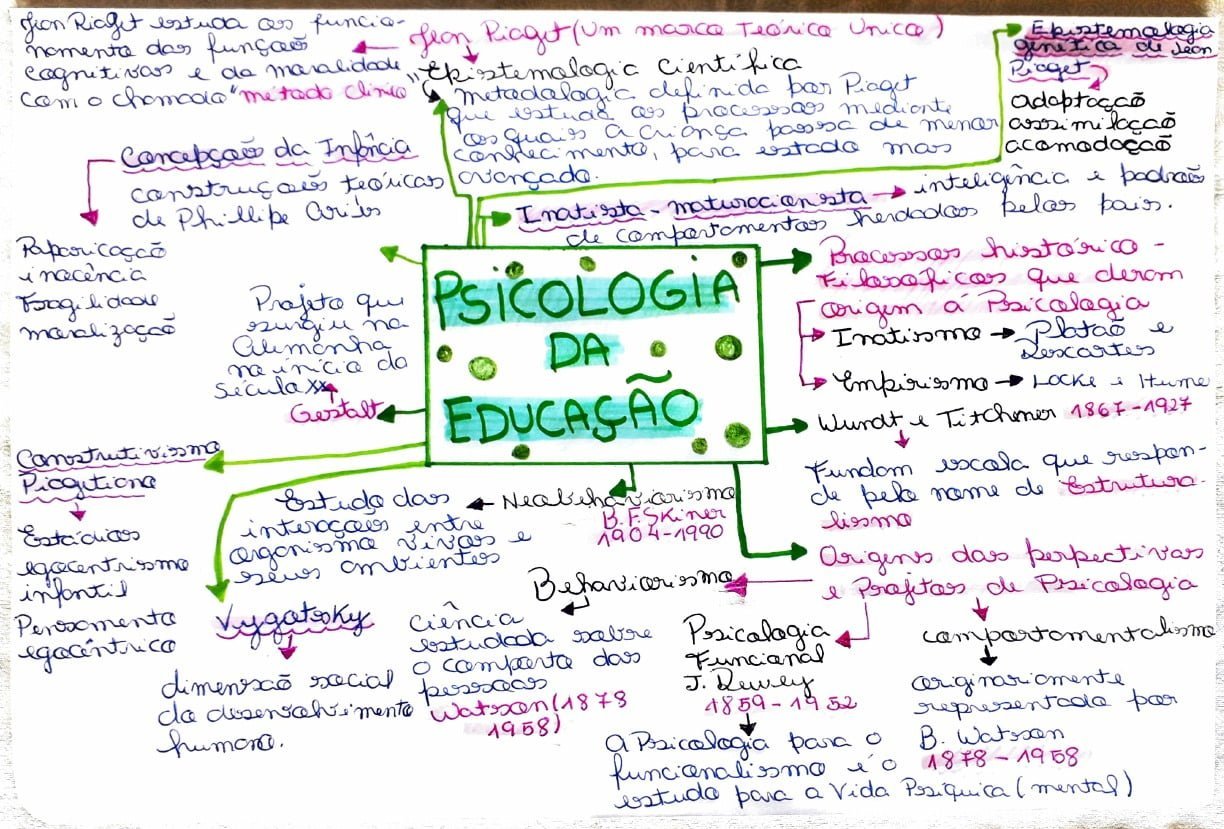 Jean Piaget estuda os funcio-
namento das funçoẽs
cognitivas e da moralidade
com o chamado "método clínico
Jean Piaget (Um marco Teórico Unico)
"Epistemologia Científica
metodologia definida por Piaget
que estuda os processos mediante
os quais a criança passa de menor
conhecimento, para estado mas
avançado.
Epistemologia
genética de Jean
Piaget
adaptação
assimilação
acomodação
Concepção da Infância
construçoẽs teóricas
de Phillipe Ariès
Paparicação
inocência
Fragilidade
moralização
Inatista - maturacionista
inteligência e padroẽs
de comportamentos herdados pelos pais.
PSICOLOGIA
DA
EDUCAÇÃO
Processos histórico -
Filosóficos que deram
origem á Psicologia
Inatismo
Platão e
Descartes
Empirismo
Locke e Hume
Wundt e Titchmer 1867-1927
Fundam escola que respon-
de pelo nome de Estrutura-
lismo
Projeto que
surgiu na
Alemanha
no início do
século XX
Gestalt
Construtivismo
Piagetiano
Estádios
egocentrismo
infantil
Pensamento
egocêntrico
Neobehaviorismo
B.F. Skiner
1904-1990
Estudo das
interaçoẽs entre
organismo vivos e
seus ambientes
Vygotsky
dimensão social
do desenvolvimento
humano.
Behaviorismo
ciência
estudada sobre
o comporta das
pessoas
Watson (1878
1958)
Origens das perpectivas
e Projetos de Psicologia
Psicologia
Funcional
J. Dewey
1859-1952
A Psicologia para o
funcionalismo é o
estudo para a Vida Psíquica (mental)
comportamentalismo
originariamente
representado por
B. Watson
1878-1958